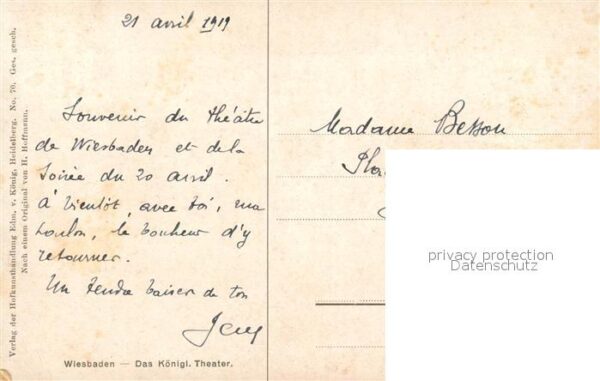 21 avril 1919
Souvenir du théâtre
de Wiesbaden et de la
soirée du 20 avril.
À bientôt, avec toi, ma
Loulou, le bonheur d'y
retourner.
Un tendre baiser de ton
Wiesbaden — Das Königl. Theater.
Verlag der Hofkunsthandlung Edm. v. König, Heidelberg. No. 70. Ges. gesch.
Nach einem Original von H. Hoffmann.
Madame Besson
privacy protection
Datenschutz